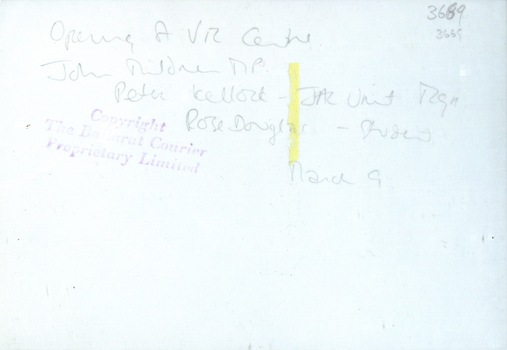 3689
3665
Opening of VR Centre
John Mildren M.P.
Peter Kellock - Unit Mgr
Rose Douglas - Student
March 9
Copyright
The Ballarat Courier
Proprietary Limited